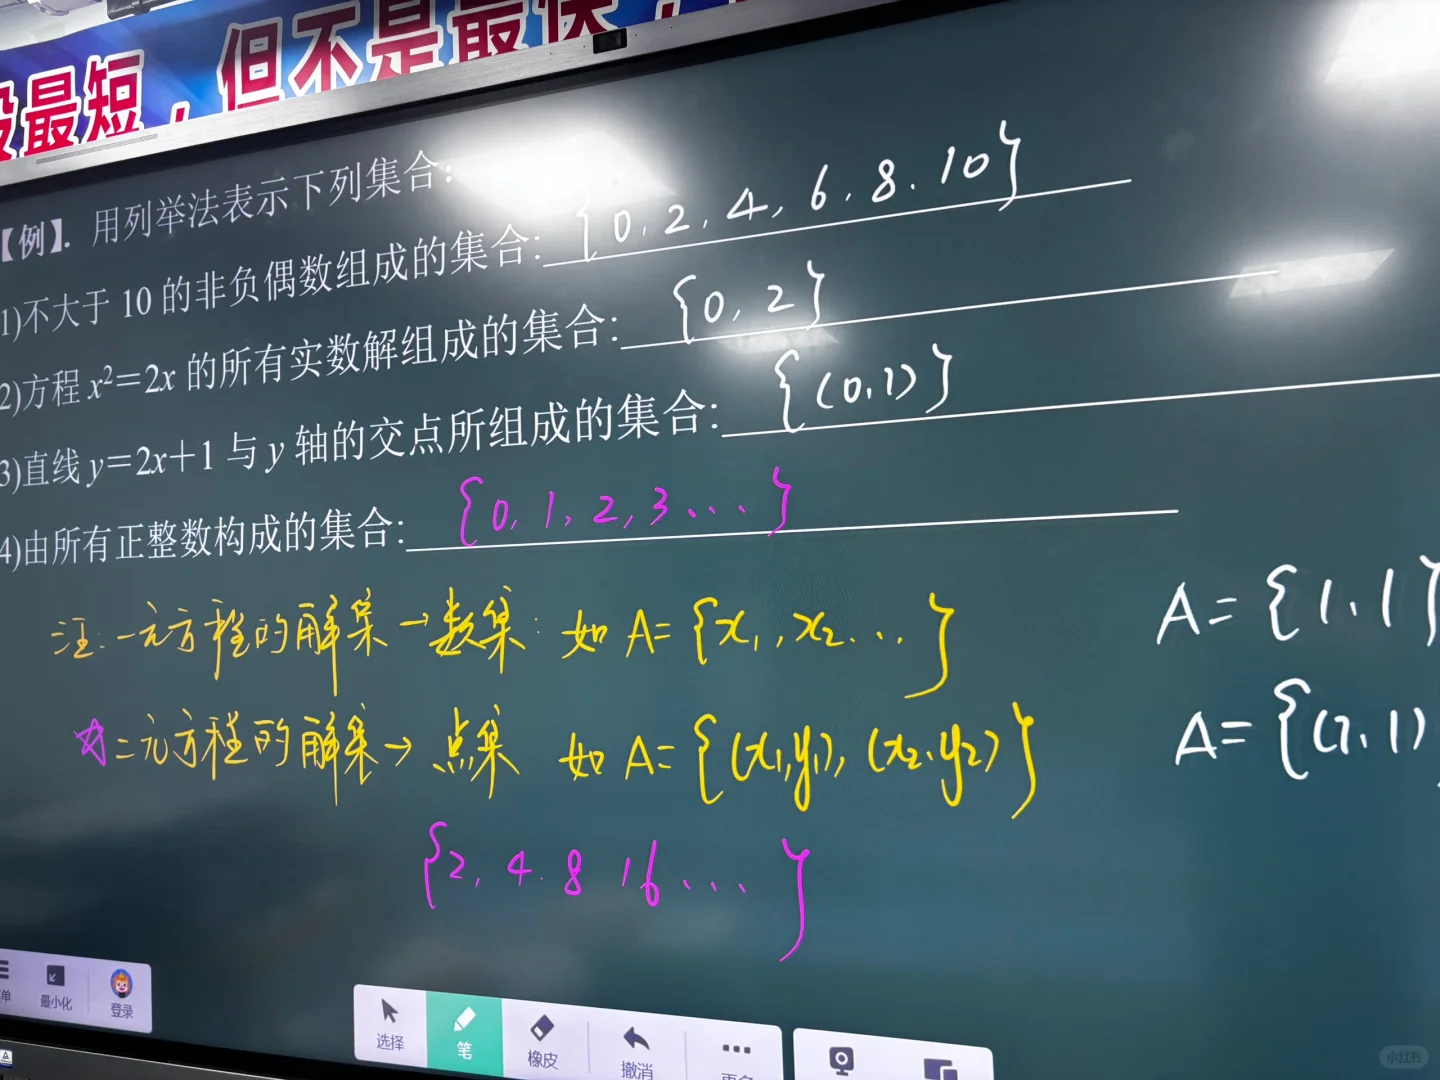 段最短，但不是最快，
【例】. 用列举法表示下列集合:
1)不大于 10 的非负偶数组成的集合: {0, 2, 4, 6, 8. 10}
2)方程 x²=2x 的所有实数解组成的集合: {0, 2}
3)直线 y=2x+1 与 y 轴的交点所组成的集合: {(0,1)}
4)由所有正整数构成的集合: {0, 1, 2, 3 ...}
注: 一元方程的解集→数集: 如 A={x₁, x₂...}
A={1, 1}
☆二元方程的解集→点集 如 A={(x₁,y₁), (x₂,y₂)}
A={(1,1)
{2, 4. 8 16 ...}
单
最小化
登录
选择
笔
橡皮
撤消
小红书